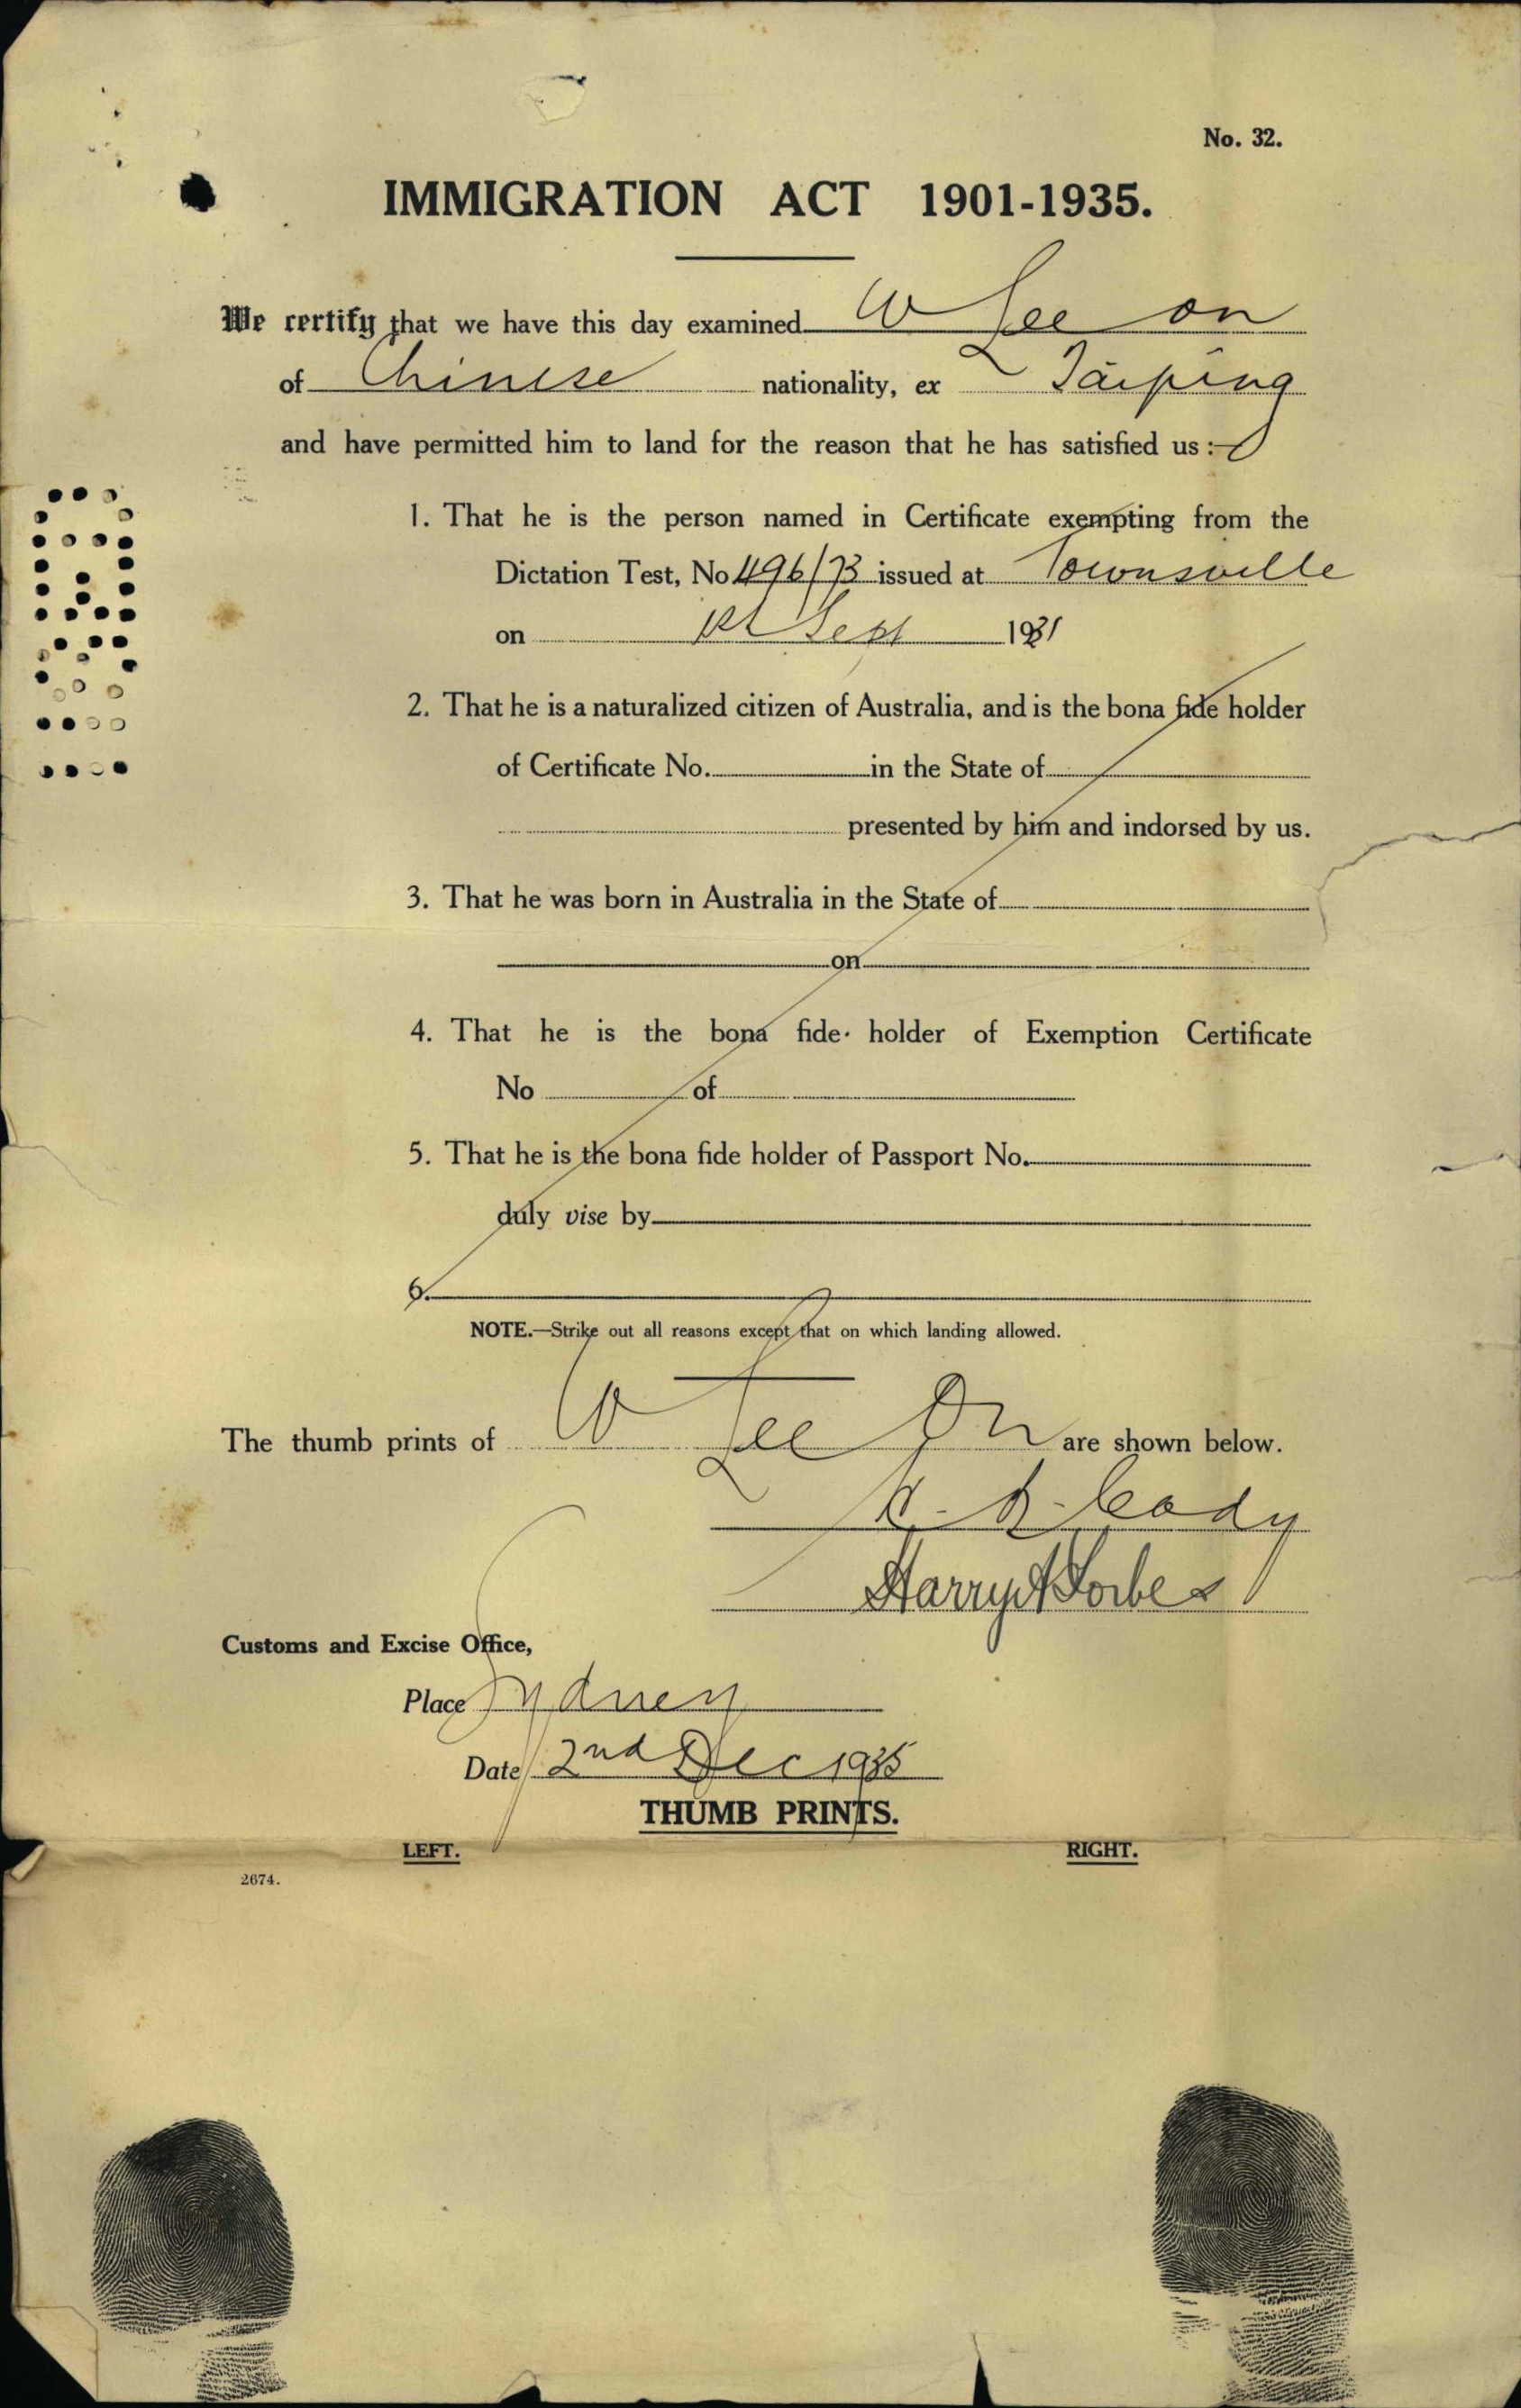 No. 32.
IMMIGRATION ACT 1901-1935.
We certify that we have this day examined W Lee on
of Chinese nationality, ex Taiping
and have permitted him to land for the reason that he has satisfied us :—
1. That he is the person named in Certificate exempting from the
Dictation Test, No 496/73 issued at Townsville
on 1st Sept 1931
2. That he is a naturalized citizen of Australia, and is the bona fide holder
of Certificate No. in the State of
presented by him and indorsed by us.
3. That he was born in Australia in the State of
on
4. That he is the bona fide holder of Exemption Certificate
No of
5. That he is the bona fide holder of Passport No.
duly vise by
6.
NOTE.—Strike out all reasons except that on which landing allowed.
The thumb prints of W Lee On are shown below.
Cody
Harry A Forbes
Customs and Excise Office,
Place Sydney
Date 2nd Dec 1935
THUMB PRINTS.
LEFT. RIGHT.
2674.